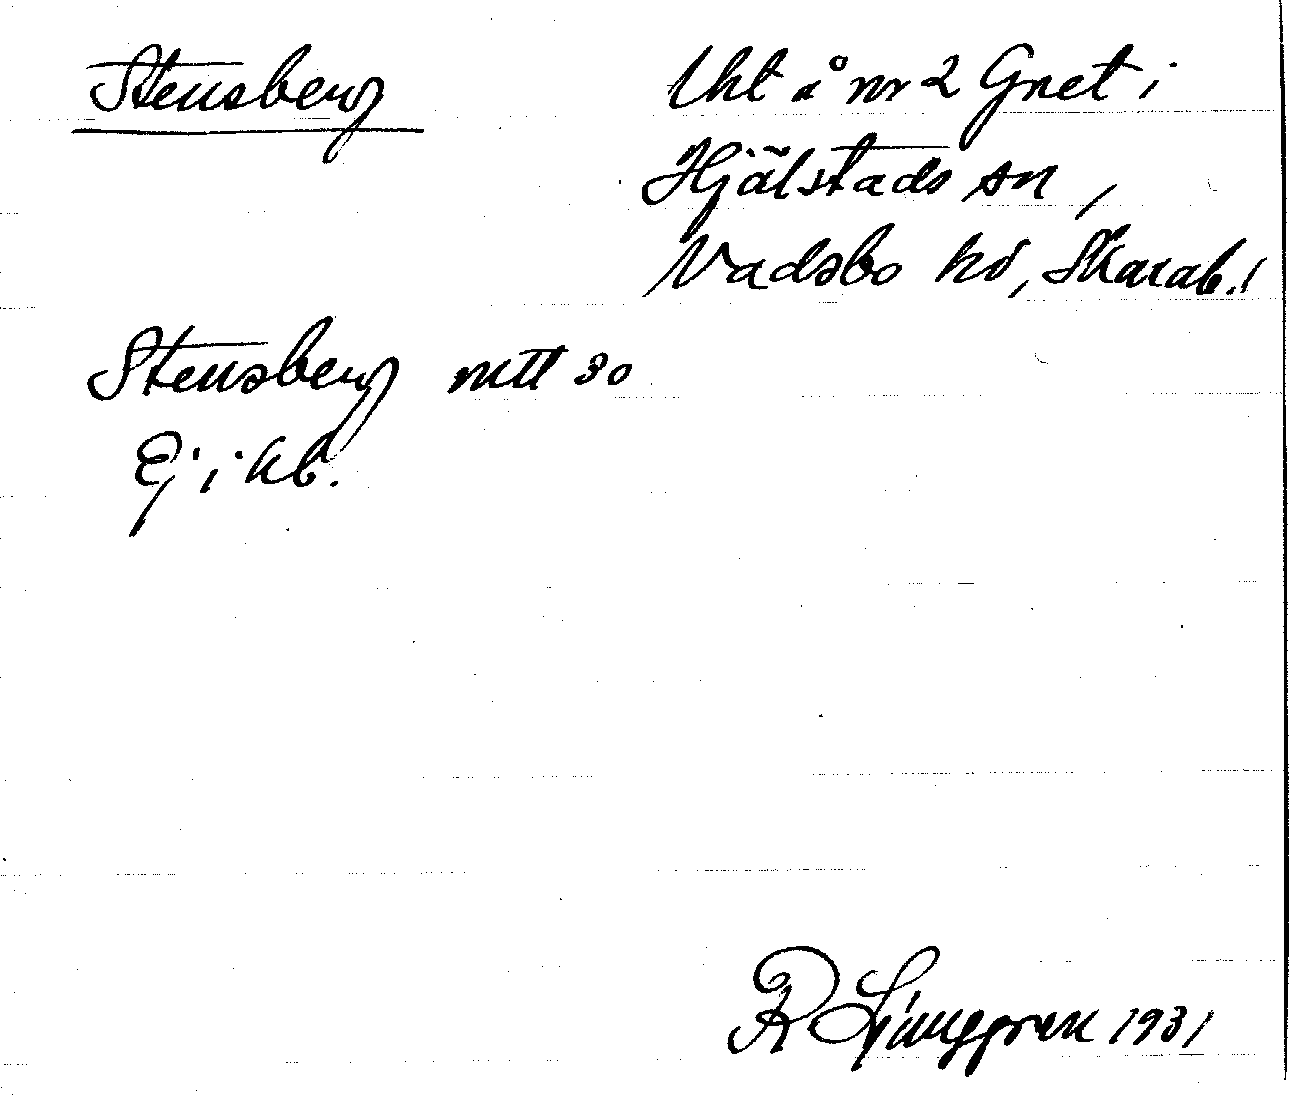 Stensberg
Lht å nr 2 Gnet i
Hjälstads sn,
Vadsbo hd, Skarab. l
Stensberg mtl 30
Ej i kb.
R Ljunggren 1931